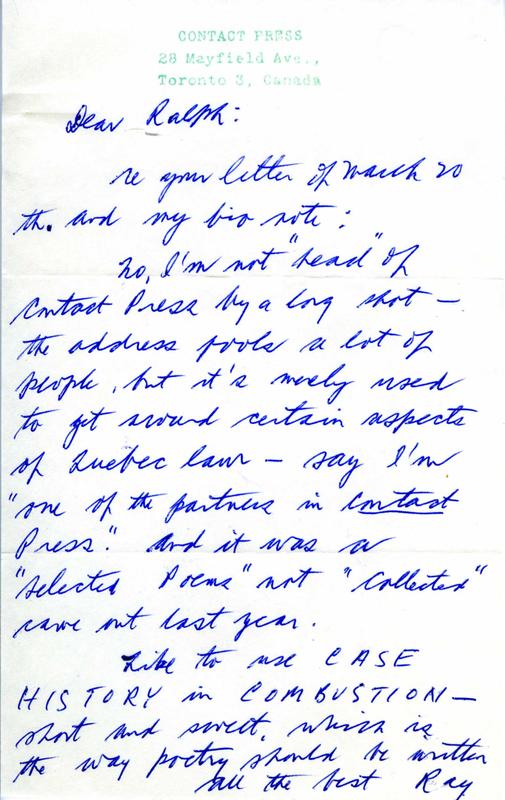 CONTACT PRESS
28 Mayfield Ave.,
Toronto 3, Canada
Dear Ralph:
re your letter of March 20
th. and my bio note:
No, I'm not "head" of
Contact Press by a long shot —
the address fools a lot of
people, but it's merely used
to get around certain aspects
of Quebec law — say I'm
"one of the partners in Contact
Press." And it was a
"Selected Poems" not "Collected"
came out last year.
Like to use CASE
HISTORY in COMBUSTION —
short and sweet, which is
the way poetry should be written
all the best Ray